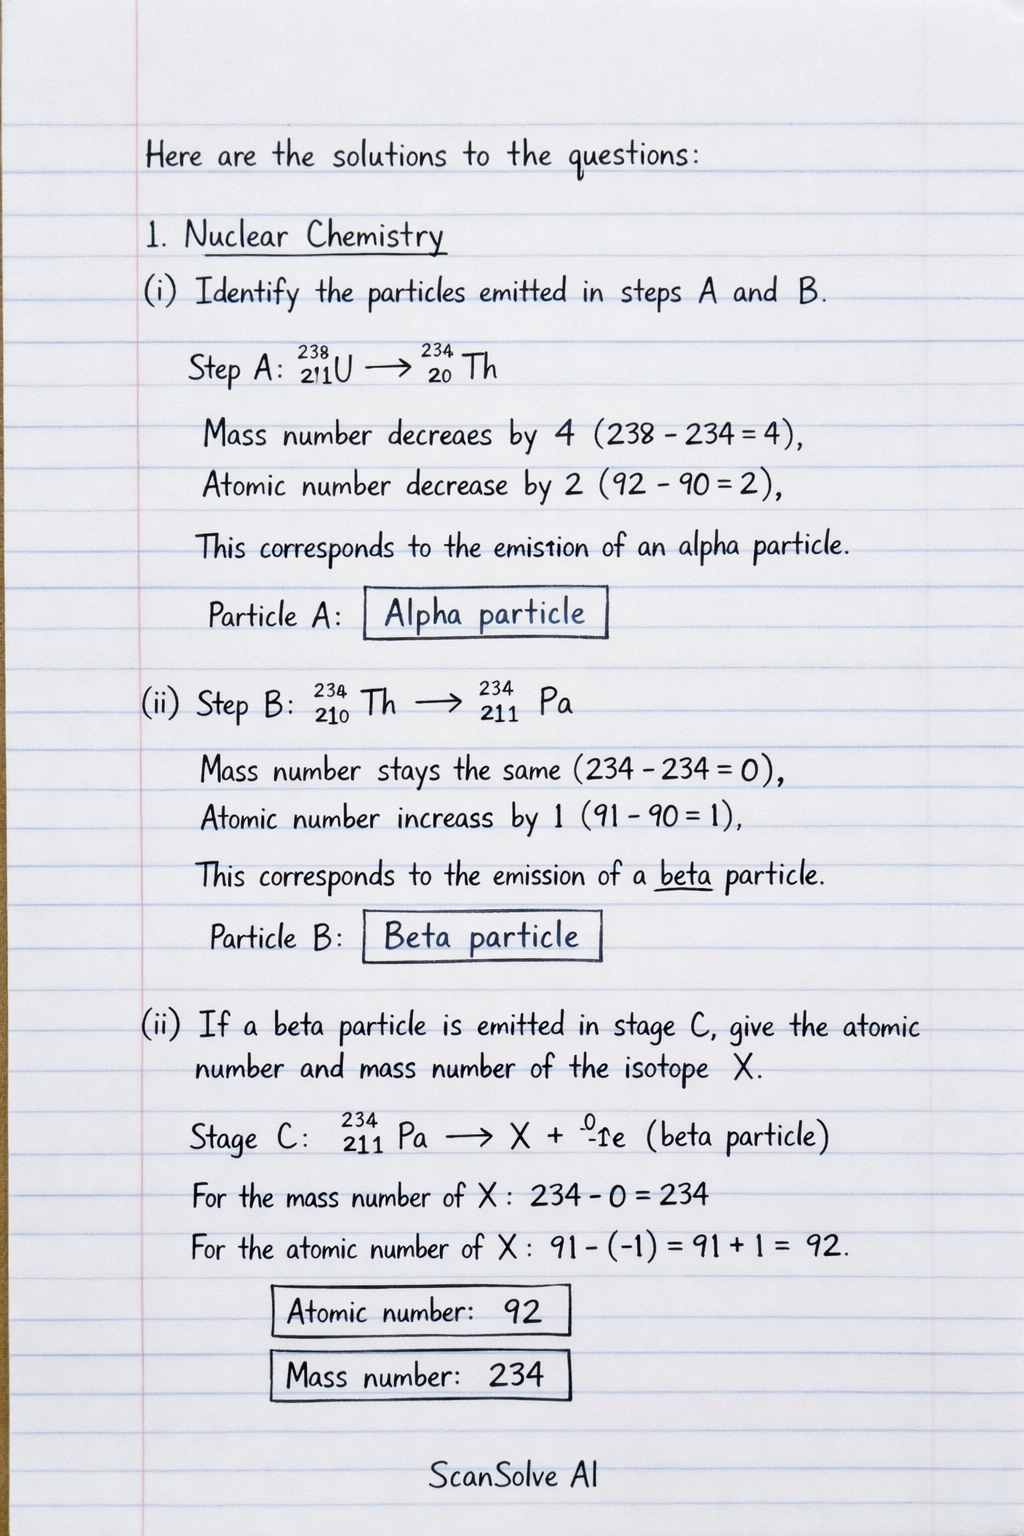 Here are the solutions to the questions:
1. Nuclear Chemistry
(i) Identify the particles emitted in steps A and B.
Step A: ²³⁸₂₁₁U → ²³⁴₂₀ Th
Mass number decreaes by 4 (238 - 234 = 4),
Atomic number decrease by 2 (92 - 90 = 2),
This corresponds to the emistion of an alpha particle.
Particle A: Alpha particle
(ii) Step B: ²³⁴₂₁₀ Th → ²³⁴₂₁₁ Pa
Mass number stays the same (234 - 234 = 0),
Atomic number increass by 1 (91 - 90 = 1),
This corresponds to the emission of a beta particle.
Particle B: Beta particle
(ii) If a beta particle is emitted in stage C, give the atomic
number and mass number of the isotope X.
Stage C: ²³⁴₂₁₁ Pa → X + ⁰₋₁e (beta particle)
For the mass number of X: 234 - 0 = 234
For the atomic number of X: 91 - (-1) = 91 + 1 = 92.
Atomic number: 92
Mass number: 234
ScanSolve AI